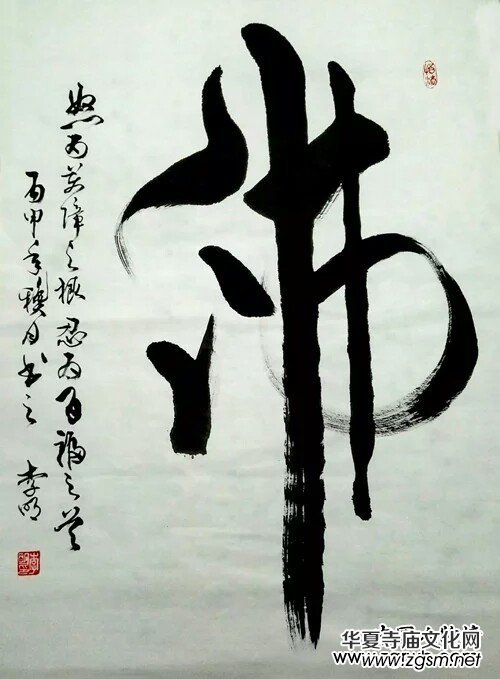 佛
怒为万障之根忍为百福之首
丙申年月书之
李明
华夏寺庙文化网
www.zgsm.net